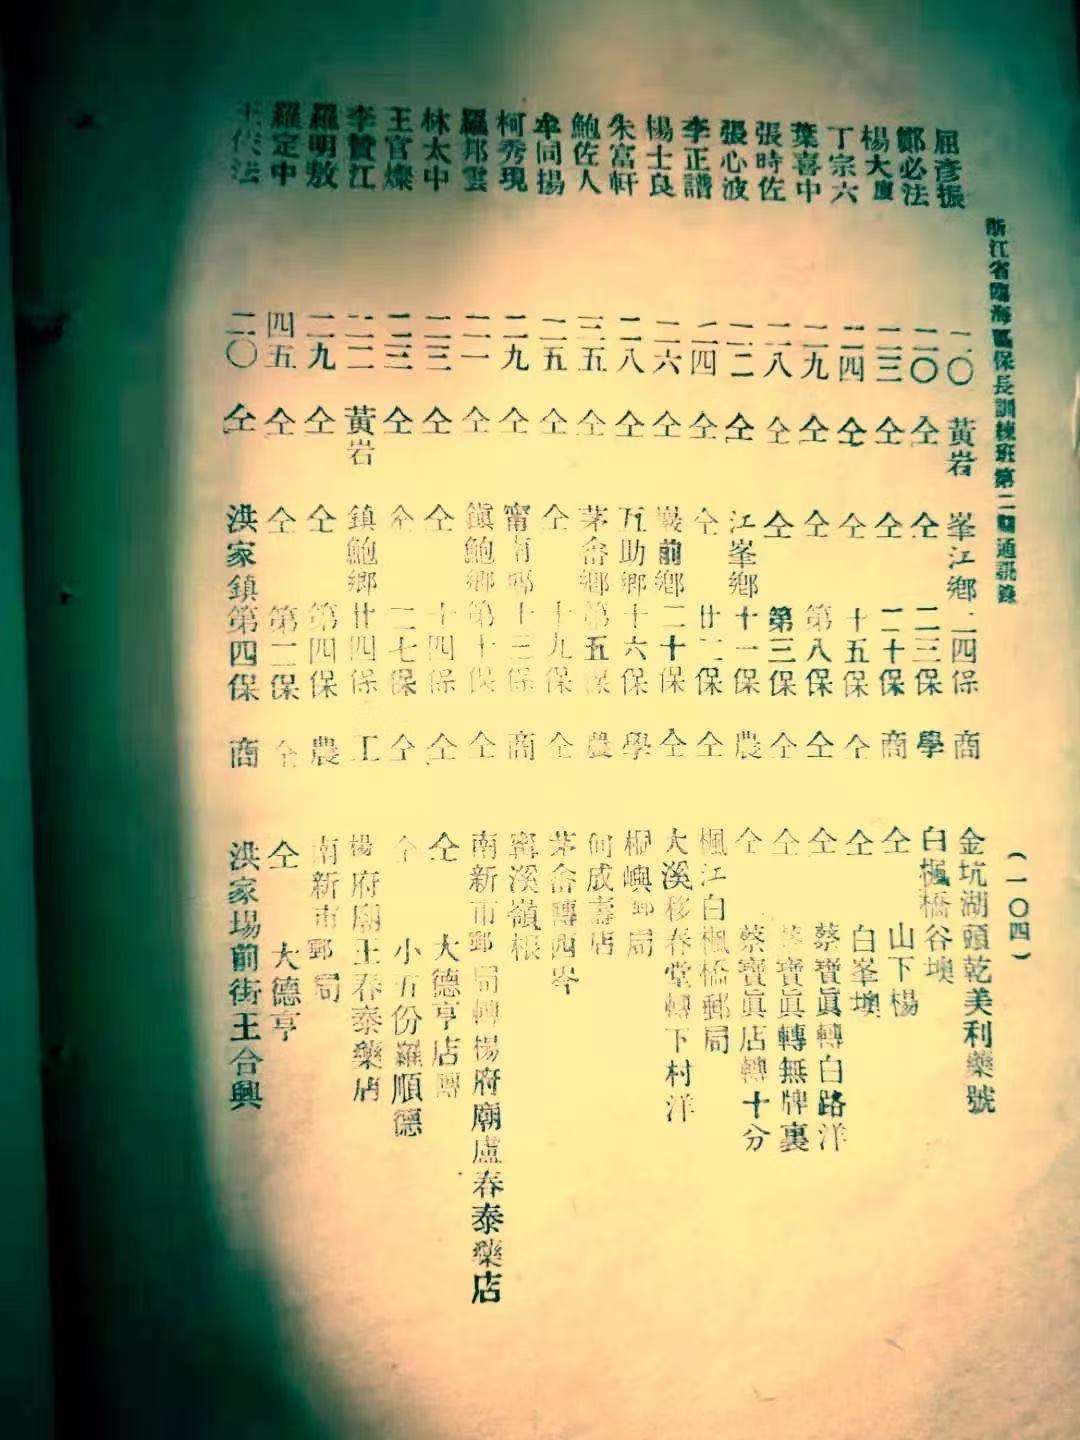 浙江省臨海區保長訓練班第二期通訊錄
(一〇四)
屈彥振 二〇 黃岩 峯江鄉 二四保 商 金坑湖頭乾美利藥號
鄭必法 二〇 仝 仝 二三保 學 白楓橋谷墺
楊大廈 二三 仝 仝 二十保 商 仝 山下楊
丁宗六 二四 仝 仝 十五保 仝 仝 白峯墺
葉喜中 二九 仝 仝 第八保 仝 仝 蔡寶眞轉白路洋
張時佐 二八 仝 仝 第三保 仝 仝 蔡寶眞轉無牌裏
張心波 二二 仝 江峯鄉 十一保 農 仝 蔡寶眞店轉十分
李正譜 二四 仝 仝 廿二保 仝 楓江白楓橋郵局
楊士良 二六 仝 前鄉 二十保 仝 大溪移春堂轉下村洋
朱富軒 二八 仝 互助鄉 十六保 學 桐嶼郵局
鮑佐人 三五 仝 茅畬鄉 第五保 農 何成壽店
牟同揚 二五 仝 仝 十九保 仝 茅畬轉西岑
柯秀現 二九 仝 甯 十三保 商 甯溪嶺根
羅邦雲 二一 仝 鎮鮑鄉 第十保 仝 南新市郵局轉楊府廟盧春泰藥店
林太中 二三 仝 仝 十四保 仝 仝 大德亨店轉
王官燦 二三 仝 仝 二七保 仝 仝 小五份羅順德
李贊江 二二 黃岩 鎮鮑鄉 廿四保 工 楊府廟王春泰藥店
羅明敖 二九 仝 仝 第四保 農 南新市郵局
羅定中 四五 仝 仝 第二保 仝 仝 大德亨
王 法 二〇 仝 洪家鎮 第四保 商 洪家場前街王合興